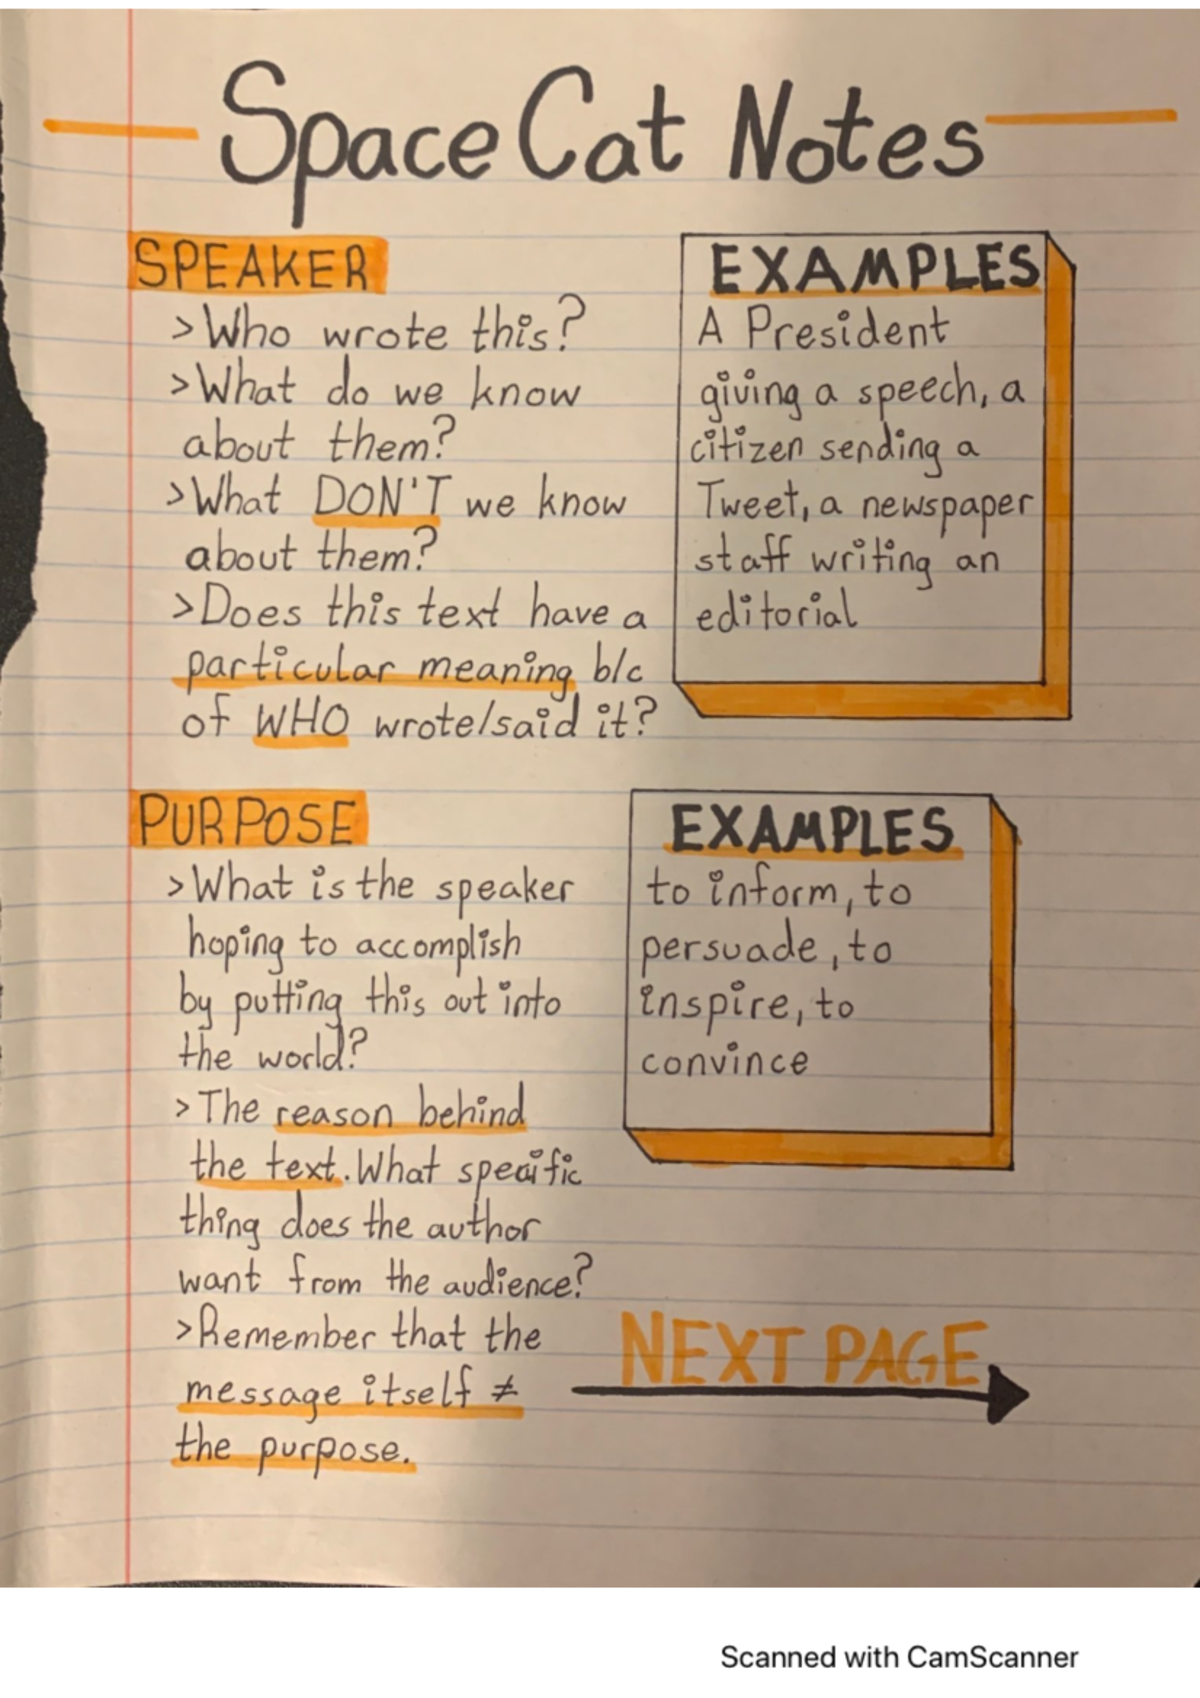 Space Cat Notes
SPEAKER
>Who wrote this?
>What do we know
about them?
>What DON'T we know
about them?
>Does this text have a
particular meaning b/c
of WHO wrote/said it?
EXAMPLES
A President
giving a speech, a
citizen sending a
Tweet, a newspaper
staff writing an
editorial
PURPOSE
>What is the speaker
hoping to accomplish
by putting this out into
the world?
>The reason behind
the text. What specific
thing does the author
want from the audience?
>Remember that the
message itself ≠
the purpose.
EXAMPLES
to inform, to
persuade, to
inspire, to
convince
NEXT PAGE
Scanned with CamScanner